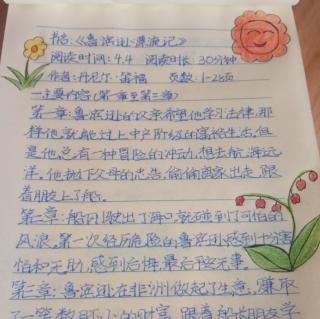 书名:《鲁滨逊漂流记》
阅读时间:4.4 阅读时长:30分钟
作者:丹尼尔·笛福 页数:1-28页
一主要内容(第一章至第三章)
第一章:鲁滨逊的父亲希望他学习法律,那
样他就能过上中产阶级的富裕生活,但
是他总有一种冒险的冲动,想去航海远
洋。他抛下父母的忠告,偷偷离家出走,跟
着朋友上了船。
第二章:船只驶出了海口,就碰到了可怕的
风浪。第一次经历危险的鲁滨逊感到十分害
怕和无助,感到后悔,最后平安无事。
第三章:鲁滨逊在非洲做起了生意,赚取
了一笔数目不小的财富,跟着船长朋友学